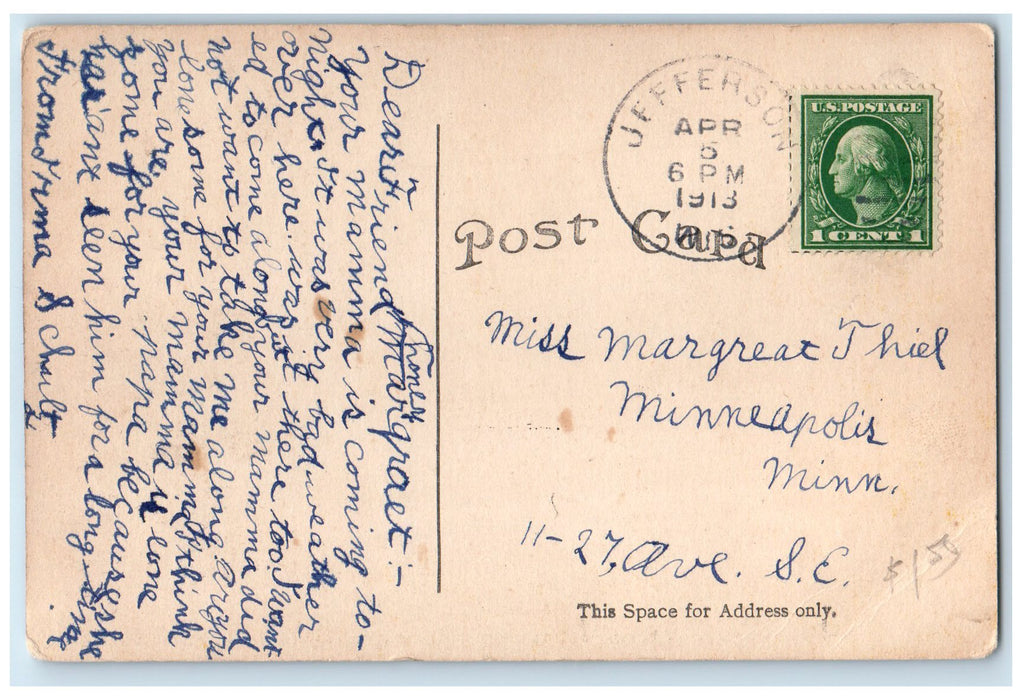 Dear Friend Margraet:-
Your mamma is coming to-
night. It was very bad weather
over here was it there too. I want
ed to come along but your mamma did
not want to take me along. Are you
lonesome for your mamma I think
you are, your mamma is lone
some for your papa because she
hasant seen him for a long time
From Irma Schult
JEFFERSON
APR
5
6 PM
1913
WIS.
U.S. POSTAGE
1 CENT 1
Post Card
Miss Margreat Thiel
Minneapolis
Minn.
11-27, Ave. S.E.
This Space for Address only.